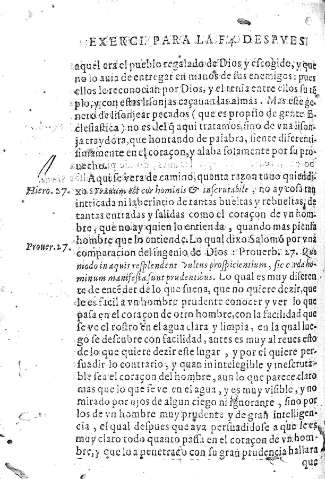 EXERCI. PARA LA F. 4. DESPVES
aquel era el pueblo regalado de Dios y escogido, y que
no lo auia de entregar en manos de sus enemigos: pues
ellos le reconocian por Dios, y el tenia entre ellos su tẽ
plo, y con estas lisonjas caçauan las almas. Mas este ge
nero de lisonjear pecados (que es propio de gente E
clesiastica) no es del q̃ aqui tratamos, sino de vna lison
ja traydora, que honrando de palabra, siente diferenti
simamente en el coraçon, y alaba solamente por su pro
uecho.
Aqui se vera de camino, quanta razon tuuo quien di
Hiero. 27.
xo: Prauum est cor hominis & inscrutabile, no ay cosa tan
intricada ni laberintio de tantas bueltas y rebueltas, de
tantas entradas y salidas como el coraçon de vn hom
bre, que no ay quien lo entienda, quando mas piensa
hombre que lo entiende. Lo qual dixo Salomõ por vna
Prouer. 27.
comparacion del ingenio de Dios: Prouerb. 27. Quo
modo in aquis resplendent vultus prospicientium, sic corda ho
minum manifesta sunt prudentibus. Lo qual es muy diferen
te de entẽder de lo que suena, que no quiere dezir, que
le es facil a vn hombre prudente conocer y ver lo que
passa en el coraçon de otro hombre, con la facilidad que
se ve el rostro en el agua clara y limpia, en la qual lue
go se descubre con facilidad, antes es muy al reues esto
de lo que quiere dezir este lugar, y por el quiere per
suadir lo contrario, y quan intelegible y inescruta
ble sea el coraçon del hombre, aun lo que parece claro
mas que lo que se ve en el agua, y es muy visible, y no
mirado por ojos de algun ciego ni ignorante, sino por
los de vn hombre muy prudente y de gran inteligen
cia, el qual despues que aya persuadidose a que le es
muy claro todo quanto passa en el coraçon de vn hom
bre, y que lo a penetrado con su gran prudencia hallara
que